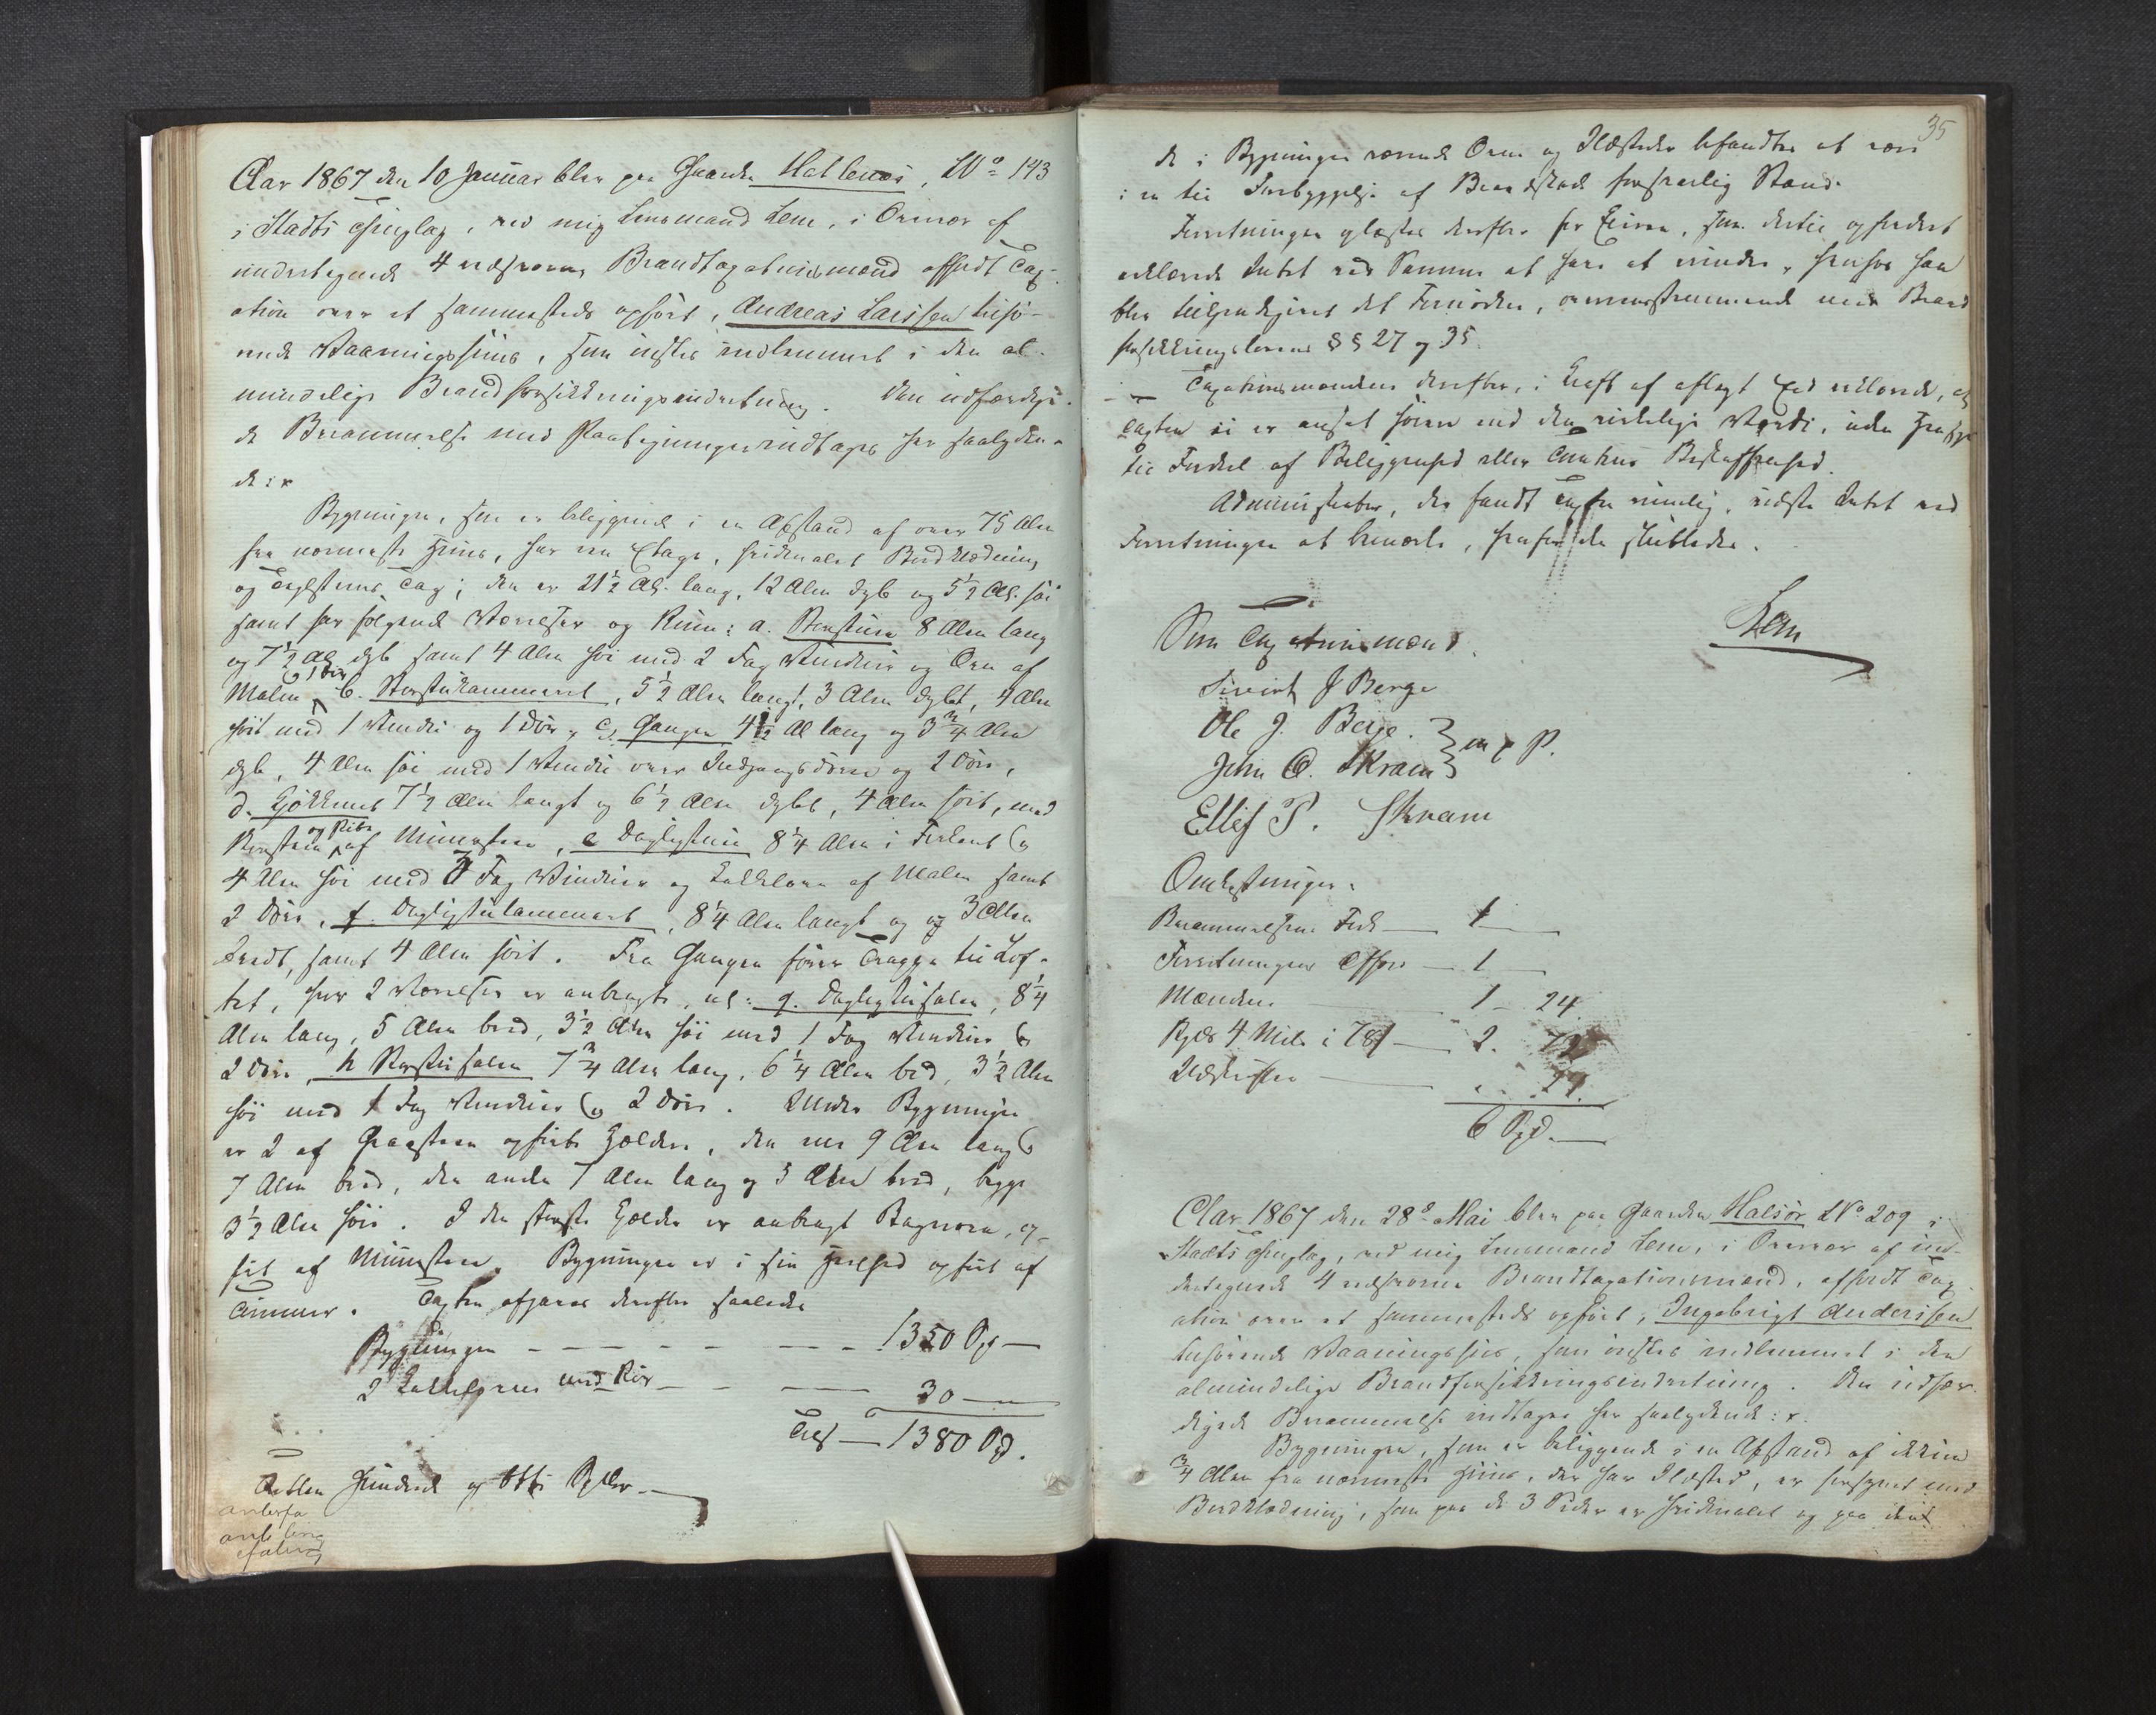 Aar 1867 den 10 Januar blev paa Gaarden Hatlenæs, No 143
i Stadts Thinglag, ved mig Lensmand Lem, i Overvær af
undertegnede 4 edsvorne Brandtaxationsmænd afholdt Tax-
ation over et sammesteds opført, Andreas Larssen tilhø-
rende Vaaningshuus, som ønskes indlemmet i den al-
mindelige Brandforsikkringsindretning. Den udfærdige-
de Berammelse med Paategninger indtages her saalyden-
de: x
Bygningen, som er beliggende i en Afstand af over 75 Alen
fra nærmeste Huus, har een Etage, hvidmalet Bordklædning
og Teglsteens Tag; den er 21½ Al. lang, 12 Alen dyb og 5½ Al. høi
samt har følgende Værelser og Rum: a. Storstuen 8 Alen lang
og 7½ Al dyb samt 4 Alen høi med 2 Fag Vinduer og Ovn af
Malm og 1 Dør b. Storstukammeret, 5½ Alen langt, 3 Alen dybt, 4 Alen
høit med 1 Vindu og 1 Dør, c, Gangen 4½ Al lang og 3¾ Alen
dyb, 4 Alen høi med 1 Vindu over Indgangsdøren og 2 Døre,
d. Kjøkkenet 7½ Alen langt og 6½ Alen dybt, 4 Alen høit, med
Skorsteen og Pibe af Muursteen, e Dagligstuen 8¼ Alen i Firkant og
4 Alen høi med Fag Vinduer og Kakkelovn af Malm samt
2 Døre, f. Dagligstukammeret, 8¼ Alen langt og og 3 Alen
bredt, samt 4 Alen høit. Fra Gangen fører Trappe til Lof-
tet, hvor 2 Værelser er anbragte, nl: g. Dagligstusalen, 8¼
Alen lang, 5 Alen bred, 3½ Alen høi med 1 Fag Vinduer og
2 Døre, h Storstusalen 7¾ Alen lang, 6¼ Alen bred, 3½ Alen
høi med 1 Fag Vinduer og 2 Døre. Under Bygningen
er 2 af Graasteen opførte Kjældere, den ene 9 Alen lang og
7 Alen bred, den anden 7 Alen lang og 5 Alen bred, begge
3½ Alen høie. I den største Kjælder er anbragt Bagerovn, op-
ført af Muursteen. Bygningen er i sin Heelhed opført af
Tømmer. Taxten afgaves derefter saaledes
Bygningen - - - - - - - - 1350 Spd —
2 Kakkelovne med Rør - - — 30 —
Tils — 1380 Spd.
Tretten Hundrede og Otti Spdlr. —
35
de i Bygningen værende Ovne og Ildsteder befandtes at være
i en til Forebyggelse af Brandskade forsvarlig Stand.
Forretningen oplæstes derefter for Eieren, som dertil opfordret
erklærede Intet ved Samme at have at erindre, hvorhos han
blev tilkjendegivet det Fornødne, overensstemmende med Brand
forsikkringslovens §§ 27 og 35.
Taxationsmændene derefter, i Kraft af aflagt Eed erklærede, at
Taxten ei er ansat høiere end den virkelige Værdi, uden Hensyn
til Fordeel af Beliggenhed eller Tomtens Beskaffenhed.
Administrator, der fandt Taxten rimelig, vidste Intet ved
Forretningen at bemærke, hvorfor den sluttedes.
Lem
Som Taxationsmænd.
Sivert J Berge
Ole J. Berge.
John O. Skram } m p P.
Ellef P. Skram
Omkostninger.
Berammelsen Fork — 1 —
Forretningens Afhol — 1 —
Mændene 1 - 24.
Skyds 4 Mile i 78 — 2. 72
Udskriften — . . 24.
6 Spd. —
Aar 1867 den 28de Mai blev paa Gaarden Halsør No 209 i
Stadts Thinglag, ved mig Lensmand Lem, i Overvær af un-
dertegnede 4 edsvorne Brandtaxationsmænd, afholdt Tax-
ation over et sammesteds opført, Ingebrigt Anderssen
tilhørende Vaaningshus, som ønskes indlemmet i den
almindelige Brandforsikkringsindretning. Den udfær-
digede Berammelse indtages her saalydende: x.
Bygningen, som er beliggende i en Afstand af ikkun
¾ Alen fra nærmeste Huus, der har Ildsted, er forsynet med
Bordklædning, som paa de 3 Sider er hvidmalet og paa den